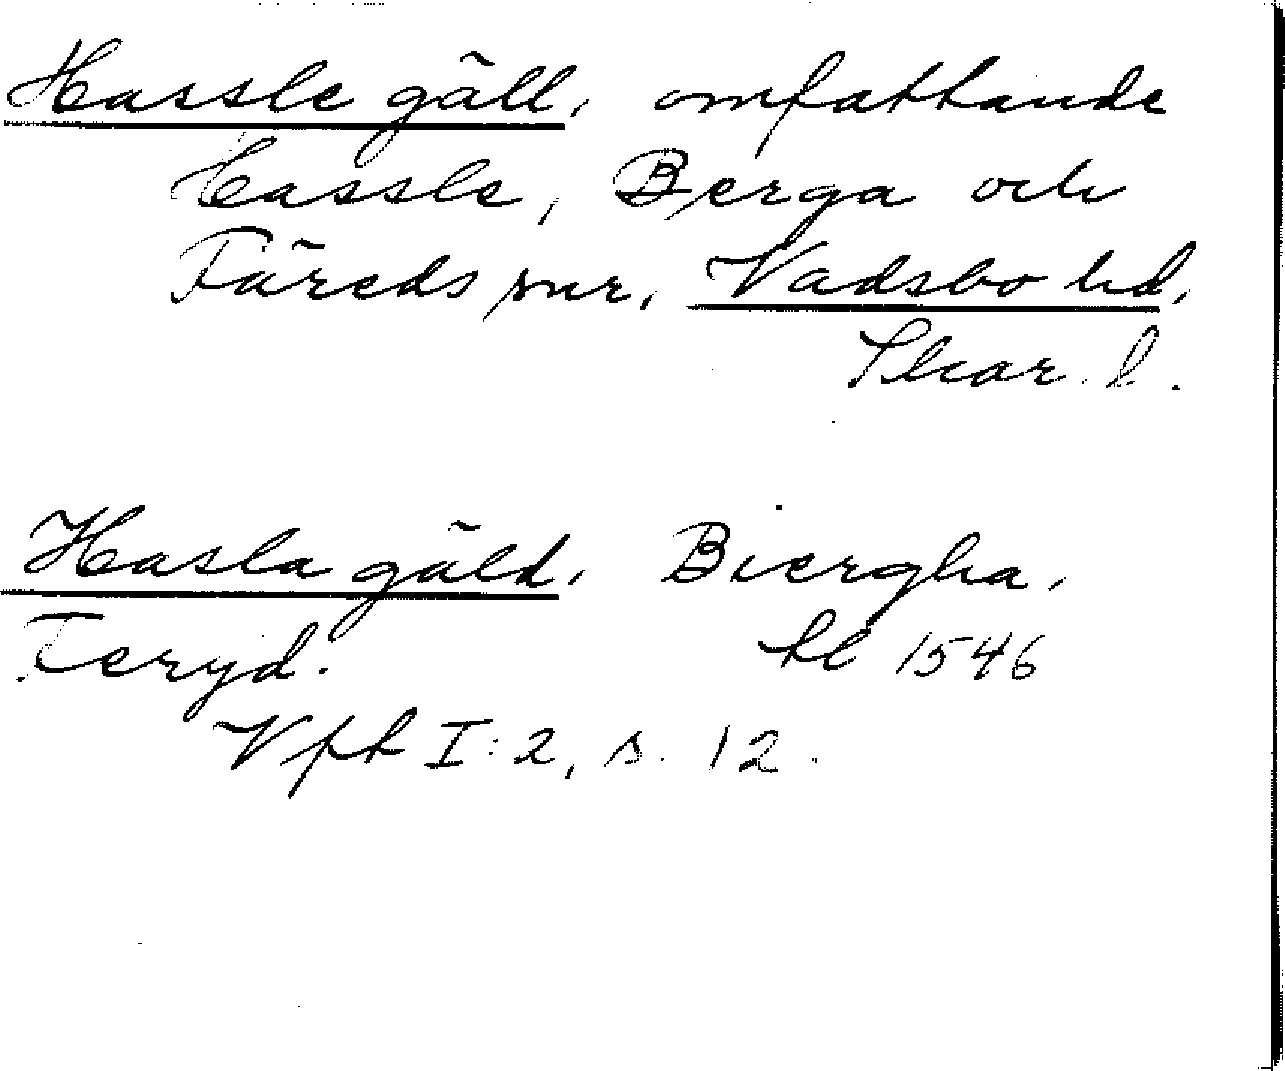 Hassle gäll, omfattande
Hassle, Berga och
Färeds snr, Vadsbo hd,
Skar. l.
Hasla gäld, Biergha,
Feryd. hl 1546
Vfk I:2, s. 12.